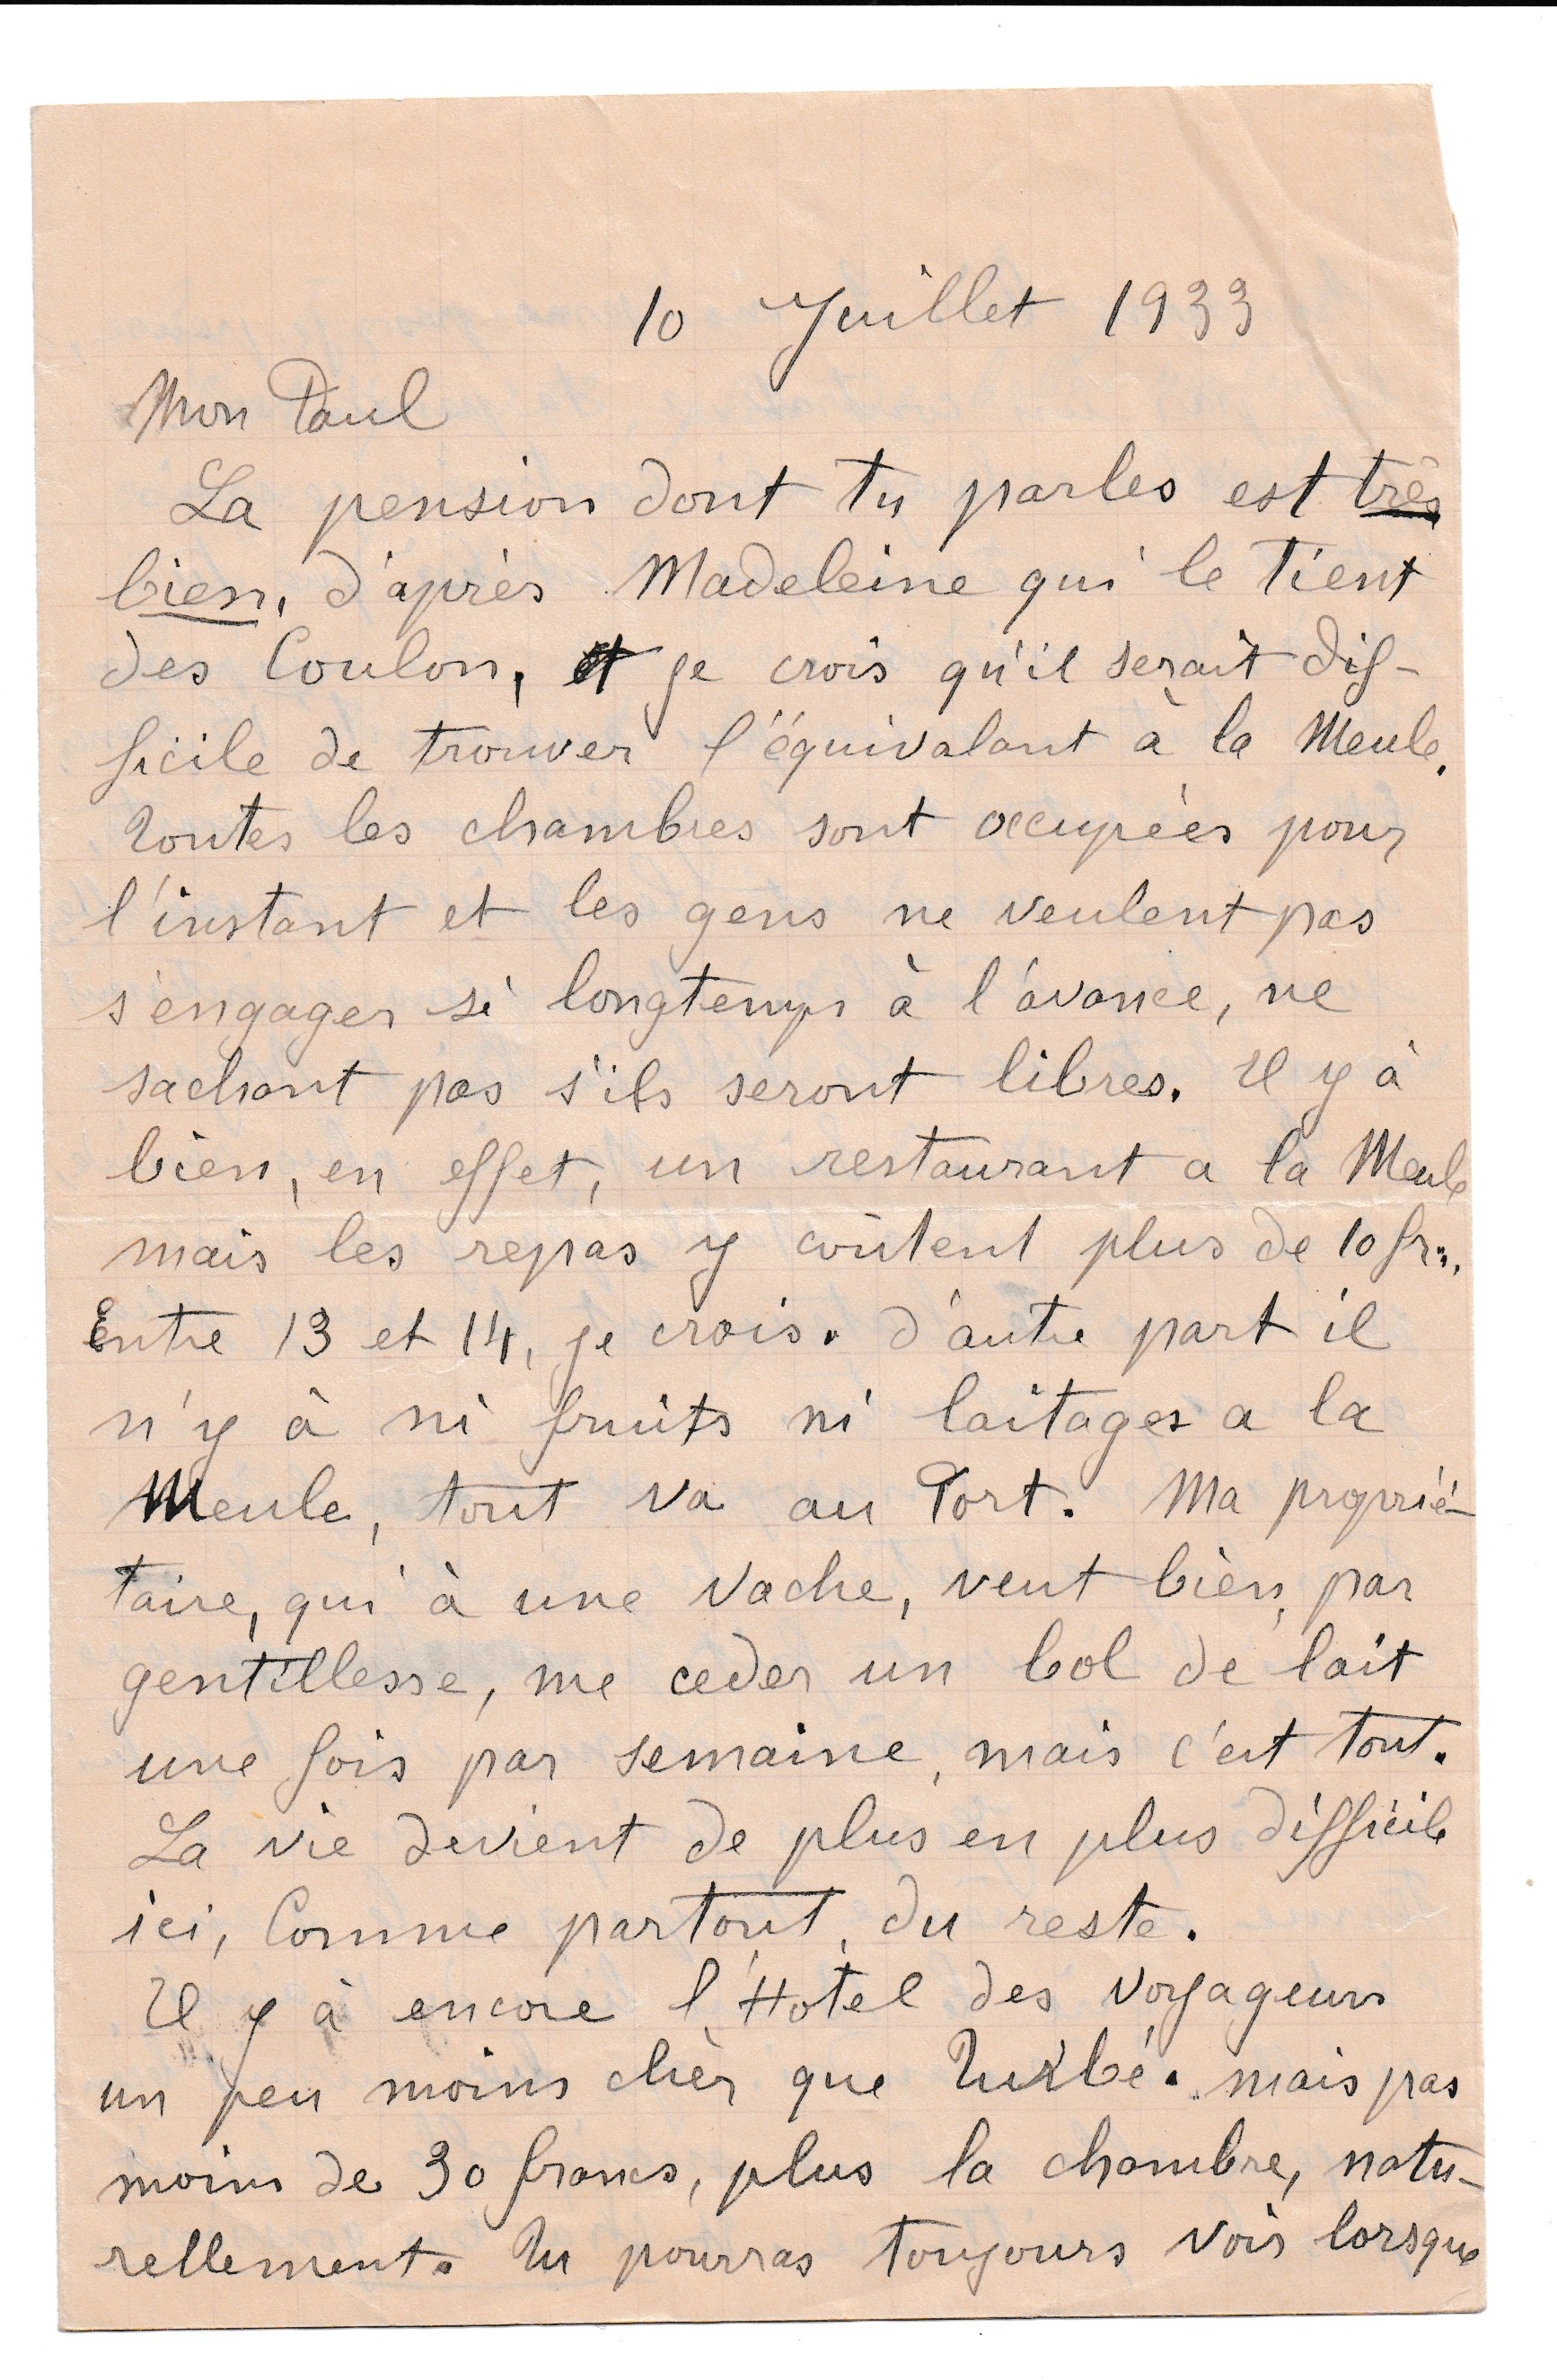 10 Juillet 1933
Mon Paul
La pension dont tu parles est très
bien, d'après Madeleine qui le tient
des Coulon, et je crois qu'il serait dif-
ficile de trouver l'équivalant à la Meule.
Toutes les chambres sont occupées pour
l'instant et les gens ne veulent pas
s'engager si longtemps à l'avance, ne
sachant pas s'ils seront libres. Il y à
bien, en effet, un restaurant a la Meule
mais les repas y coûtent plus de 10 frs.
Entre 13 et 14, je crois. d'autre part il
n'y à ni fruits ni laitages a la
Meule, tout va au Port. Ma proprié-
taire, qui à une vache, veut bien, par
gentillesse, me ceder un bol de lait
une fois par semaine, mais c'est tout.
La vie devient de plus en plus difficile
ici, Comme partout, du reste.
Il y à encore l'Hotel des Voyageurs
un peu moins chèr que Turbé. mais pas
moins de 30 francs, plus la chambre, natu-
rellement. Tu pourras toujours voir lorsque